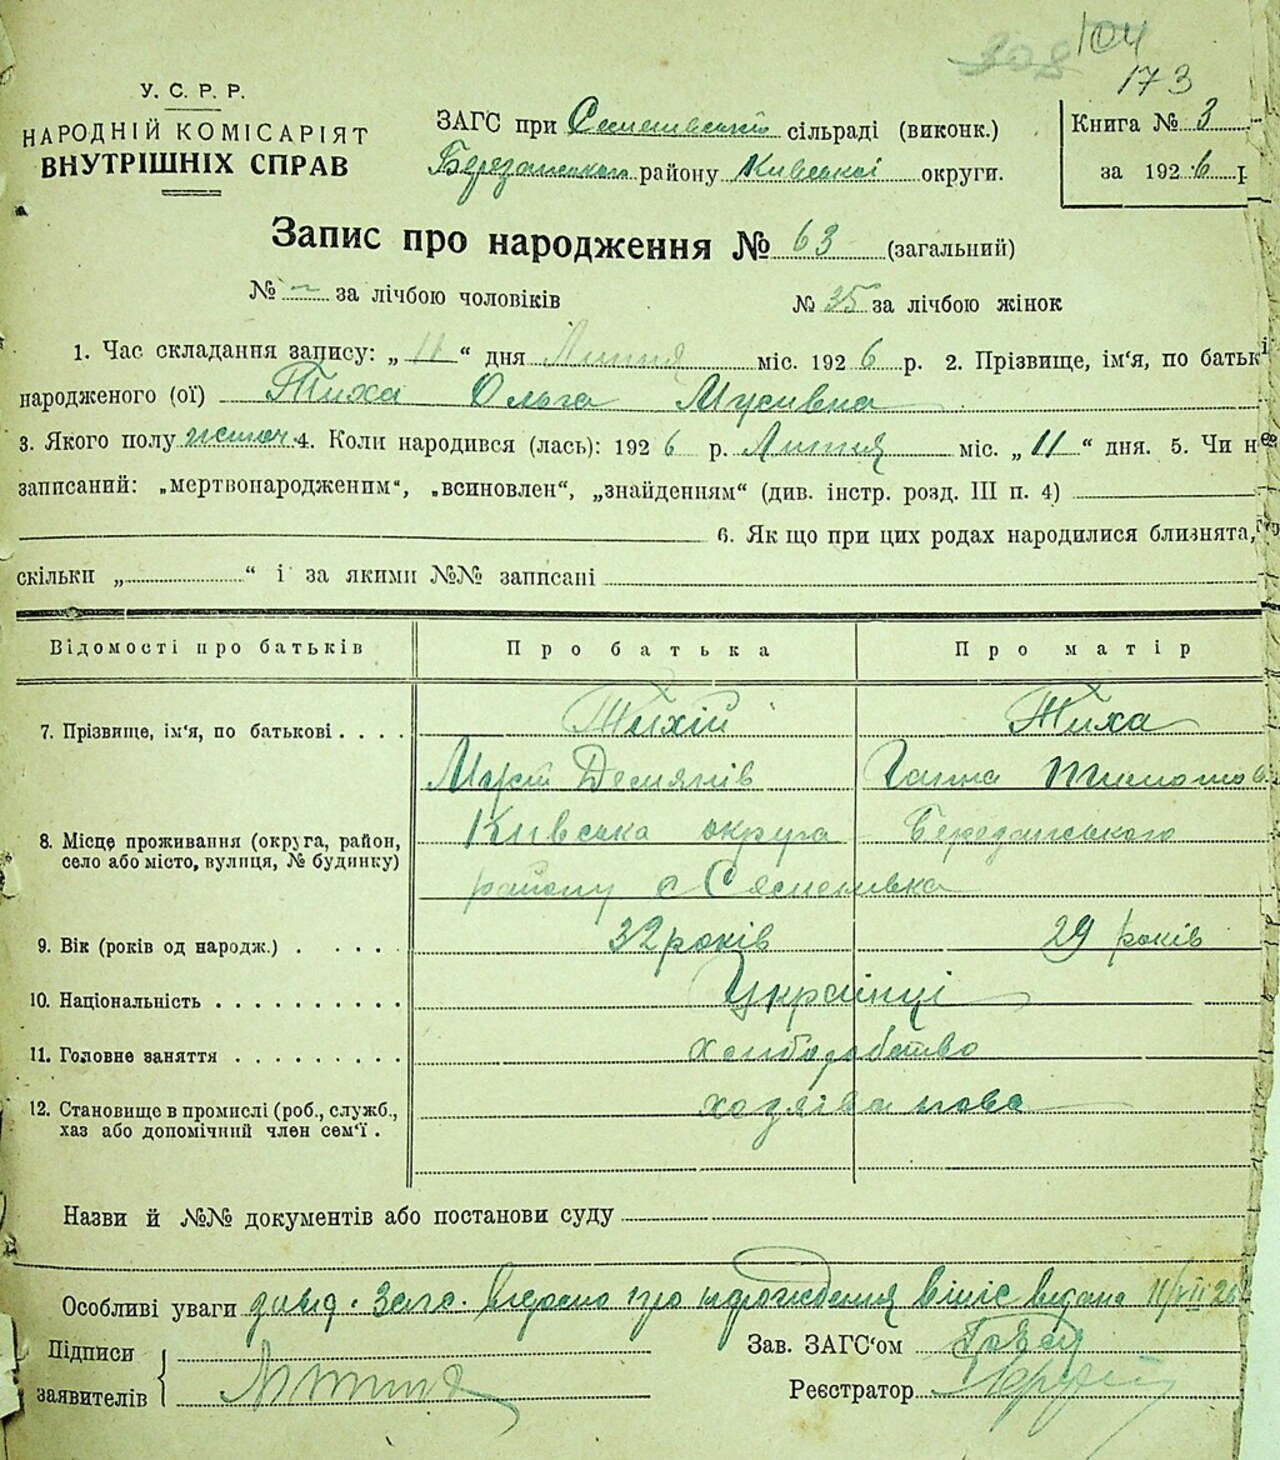 308 104
173
У. С. Р. Р.
НАРОДНІЙ КОМІСАРІЯТ
ВНУТРІШНІХ СПРАВ
ЗАГС при сільраді (виконк.)
Березанського району Київської округи.
Книга № 3
за 1926 р
Запис про народження № 63 (загальний)
№ – за лічбою чоловіків № 35 за лічбою жінок
1. Час складання запису: „ 11 “ дня Липня міс. 1926 р. 2. Прізвище, ім‘я, по батькі
народженого (ої) Тиха Ольга Мусивна
3. Якого полу жіноч. 4. Коли народився (лась): 1926 р. Липня міс. „ 11 “ дня. 5. Чи не
записаний: „мертвонародженим“, „всиновлен“, „знайденням“ (див. інстр. розд. III п. 4)
6. Як що при цих родах народилися близнята,
скільки „ “ і за якими №№ записані
Відомості про батьків Про батька Про матір
7. Прізвище, ім‘я, по батькові . . . . Тихій Тиха
Демянів Ганна
8. Місце проживання (округа, район, село або місто, вулиця, № будинку) Київська округа Березанського
району с
9. Вік (років од народж.) . . . . . 32 років 29 років
10. Національність . . . . . . . . . . Українці
11. Головне заняття . . . . . . . . . хліборобство
12. Становище в промислі (роб., служб.,
хаз або допомічний член сем‘ї .
Назви й №№ документів або постанови суду
Особливі уваги про народження видана 11/VII 26
Підписи
заявителів
Зав. ЗАГС‘ом
Реєстратор